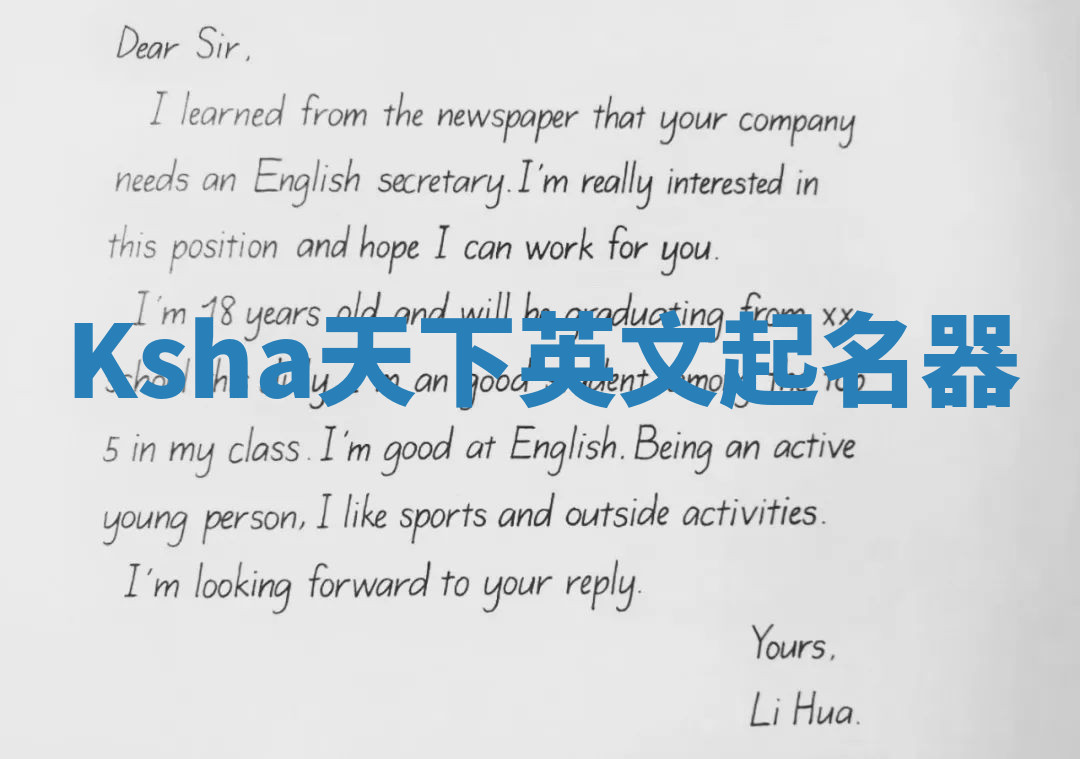 Dear Sir,
I learned from the newspaper that your company
needs an English secretary. I'm really interested in
this position and hope I can work for you.
I'm 18 years old and will be graduating from xx
Ksha天下英文起名器
an good
5 in my class. I'm good at English. Being an active
young person, I like sports and outside activities.
I'm looking forward to your reply.
Yours,
Li Hua.